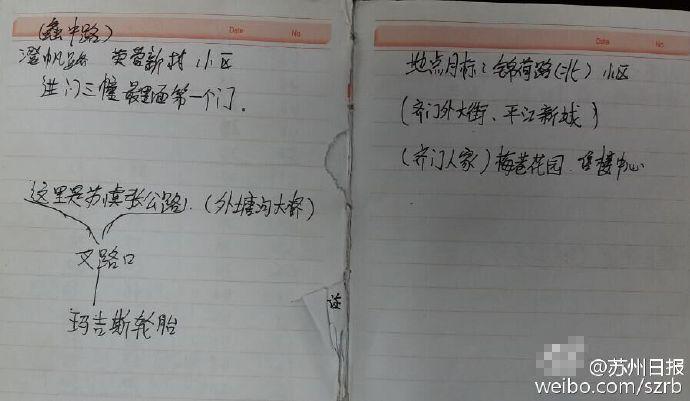 Date No
(蠡中路)
澄帆路 英萱新村 小区
进门三幢最里面第一个门.
这里是苏慎张公路. (外塘沟大桥)
叉路口
玛吉斯轮胎
Date No
地点目标:锦荷路(北) 小区
(齐门外大街、平江新城)
(齐门人家) 梅巷花园 售楼中心
@苏州日报
weibo.com/szrb